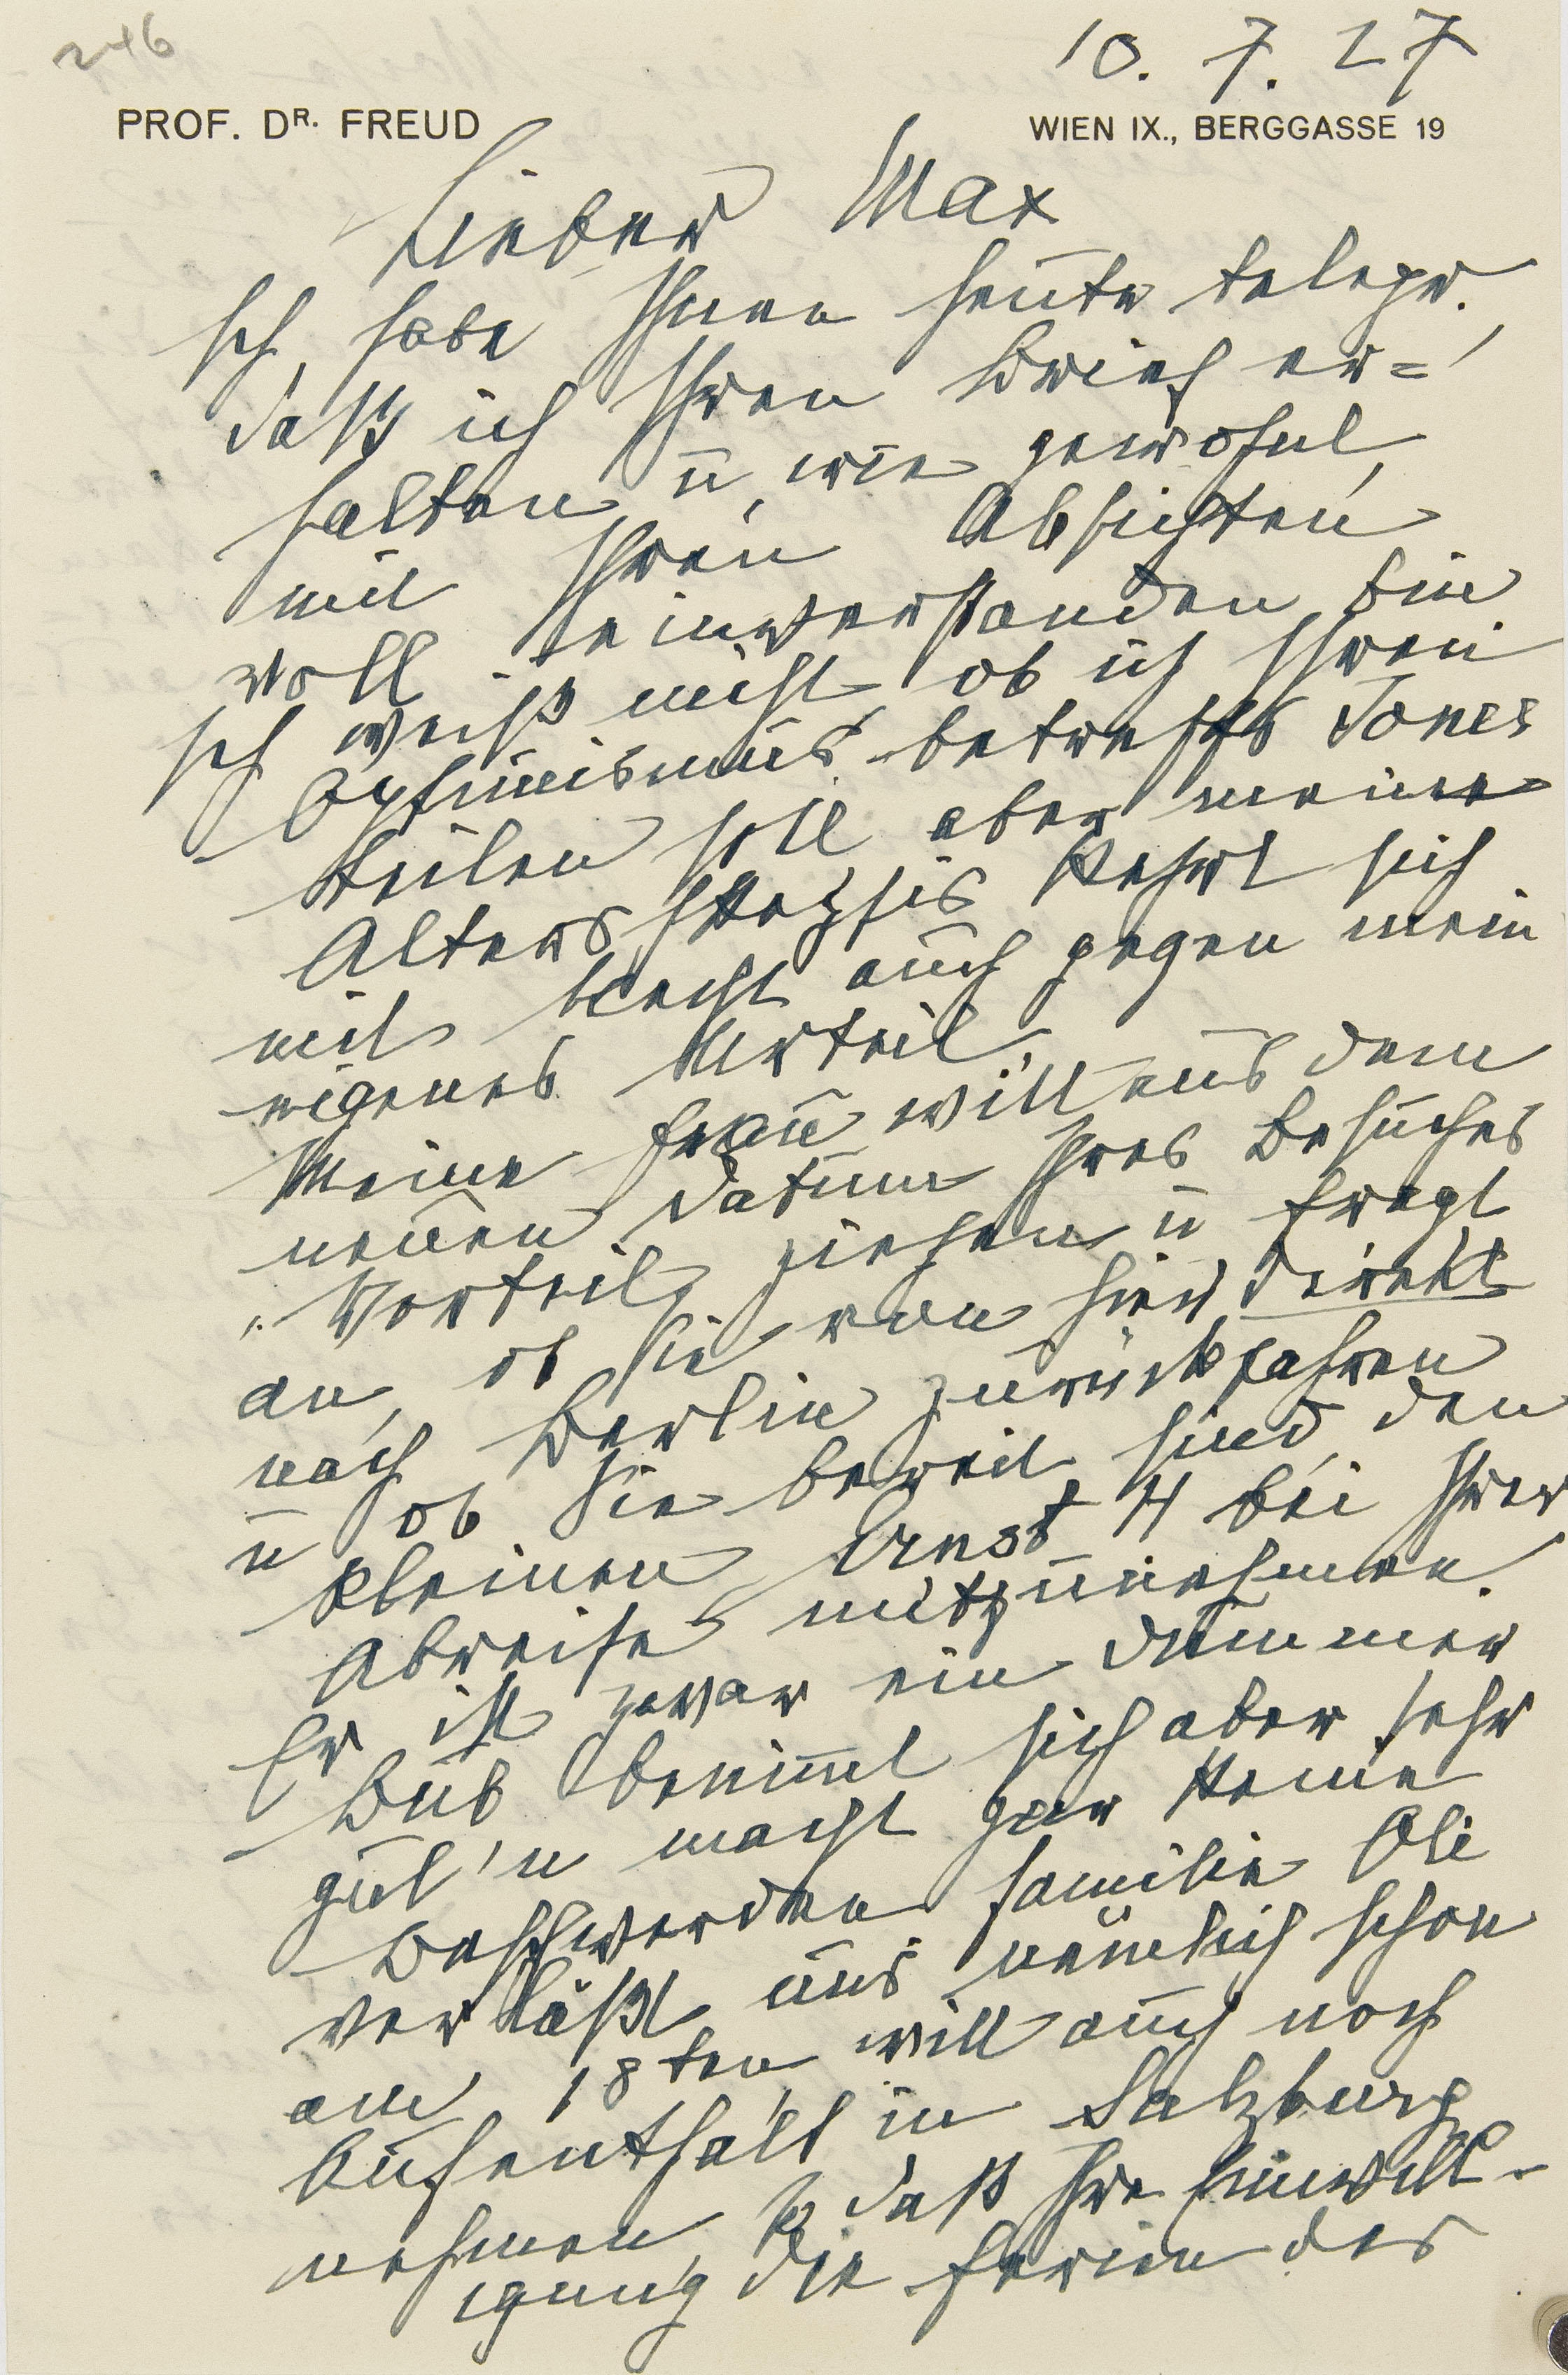 246
10. 7. 27
PROF. DR. FREUD
WIEN IX., BERGGASSE 19
Lieber Max
Ich habe Ihnen heute telegr.,
daß ich Ihren Brief er=
halten u, wie gewohnt,
mit Ihren Absichten
voll einverstanden bin
Ich weiß nicht, ob ich Ihren
Optimismus betreffs Jones
teilen soll aber meine
Altersskepsis kehrt sich
mit Recht auch gegen mein
eigenes Urteil.
Meine Frau will aus dem
neuen Datum Ihres Besuches
Vorteil ziehen u fragt
an, ob Sie von hier direkt
nach Berlin zurückfahren
u ob Sie bereit sind, den
kleinen Ernst H bei Ihrer
Abreise mitzunehmen.
Er ist zwar ein dummer
Bub benimmt sich aber sehr
gut 'u macht gar keine
Beschwerden Familie Oli
verläßt uns nämlich schon
am 18ten, will auch noch
Aufenthalt in Salzburg
nehmen, so daß Ihre Einwill-
igung die Ferien des